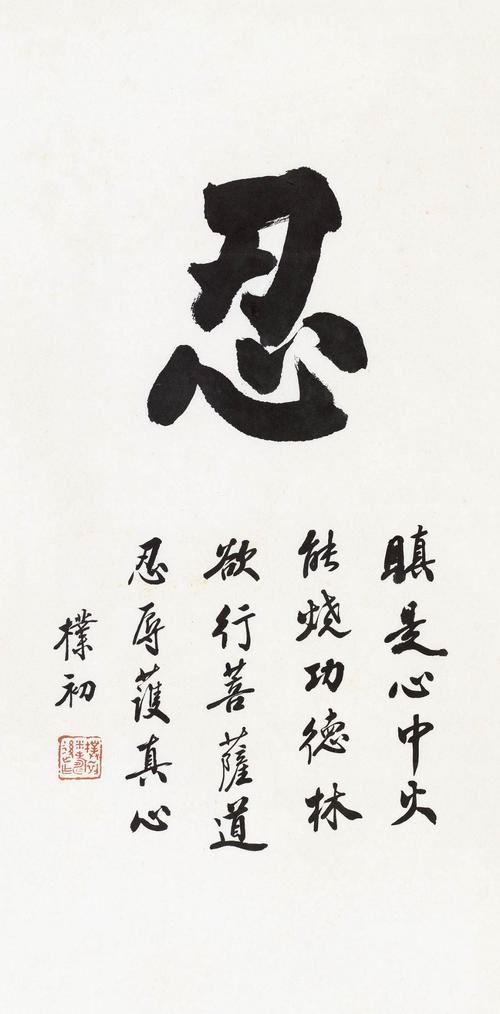 忍
瞋是心中火
能燒功德林
欲行菩薩道
忍辱護真心
樸初